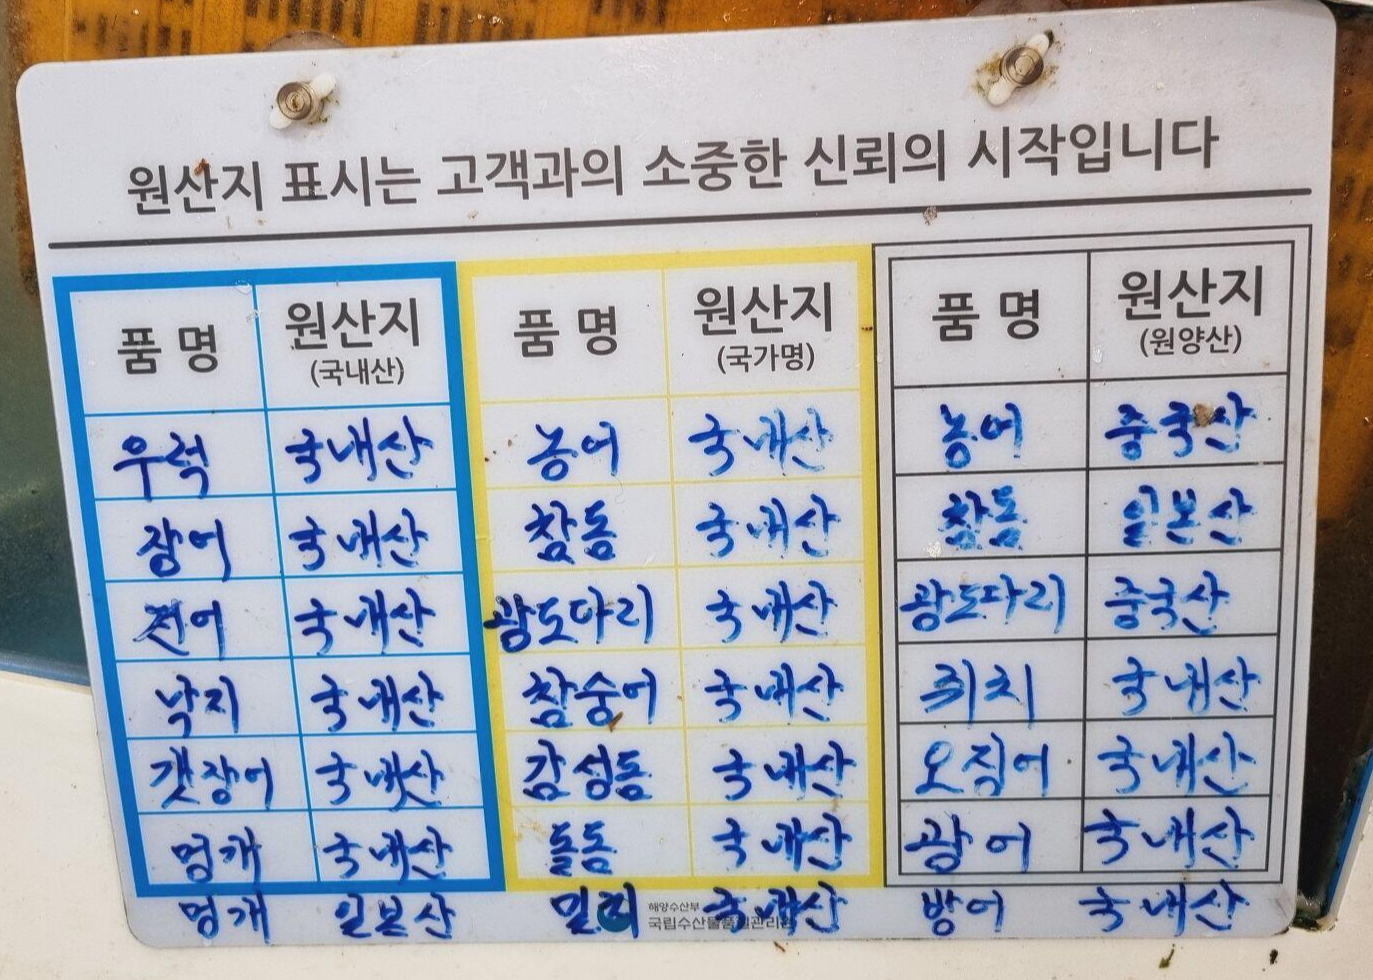 원산지 표시는 고객과의 소중한 신뢰의 시작입니다
품명 원산지 품명 원산지 품명 원산지
(국내산) (국가명) (원양산)
우럭 국내산 농어 국내산 농어 중국산
장어 국내산 참돔 국내산 참돔 일본산
전어 국내산 광도다리 국내산 광도다리 중국산
낙지 국내산 참숭어 국내산 쥐치 국내산
갯장어 국내산 감성돔 국내산 오징어 국내산
멍게 국내산 돌돔 국내산 광어 국내산
멍게 일본산 국내산 방어 국내산
해양수산부
국립수산물품질관리원